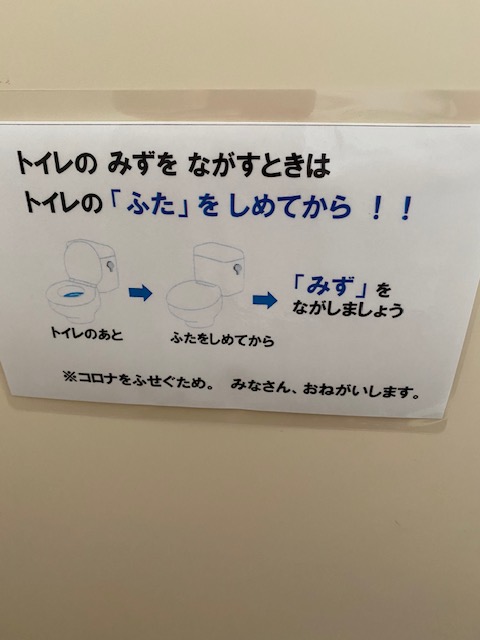 トイレの みずを ながすときは
トイレの「ふた」を しめてから ！！
「みず」を
ながしましょう
トイレのあと
ふたをしめてから
※コロナをふせぐため。 みなさん、おねがいします。